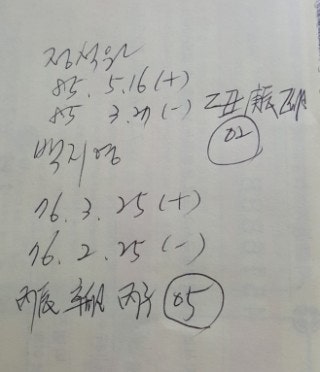 정석원
85. 5.16 (+)
85 3.27 (-)
乙丑 庚辰 乙卯
02
백지영
76. 3. 25 (+)
76. 2. 25 (-)
丙辰 辛卯 丙子 05